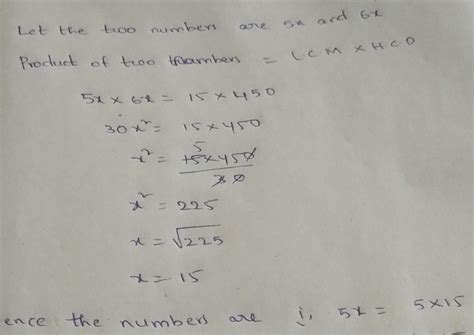 Let the two numbers are 5x and 6x
Product of two numbers = LCM x HCD
5x x 6x = 15 x 450
30x² = 15 x 450
x² = 15 x 450 / 30
5
x² = 225
x = √225
x = 15
ence the numbers are i, 5x = 5x15